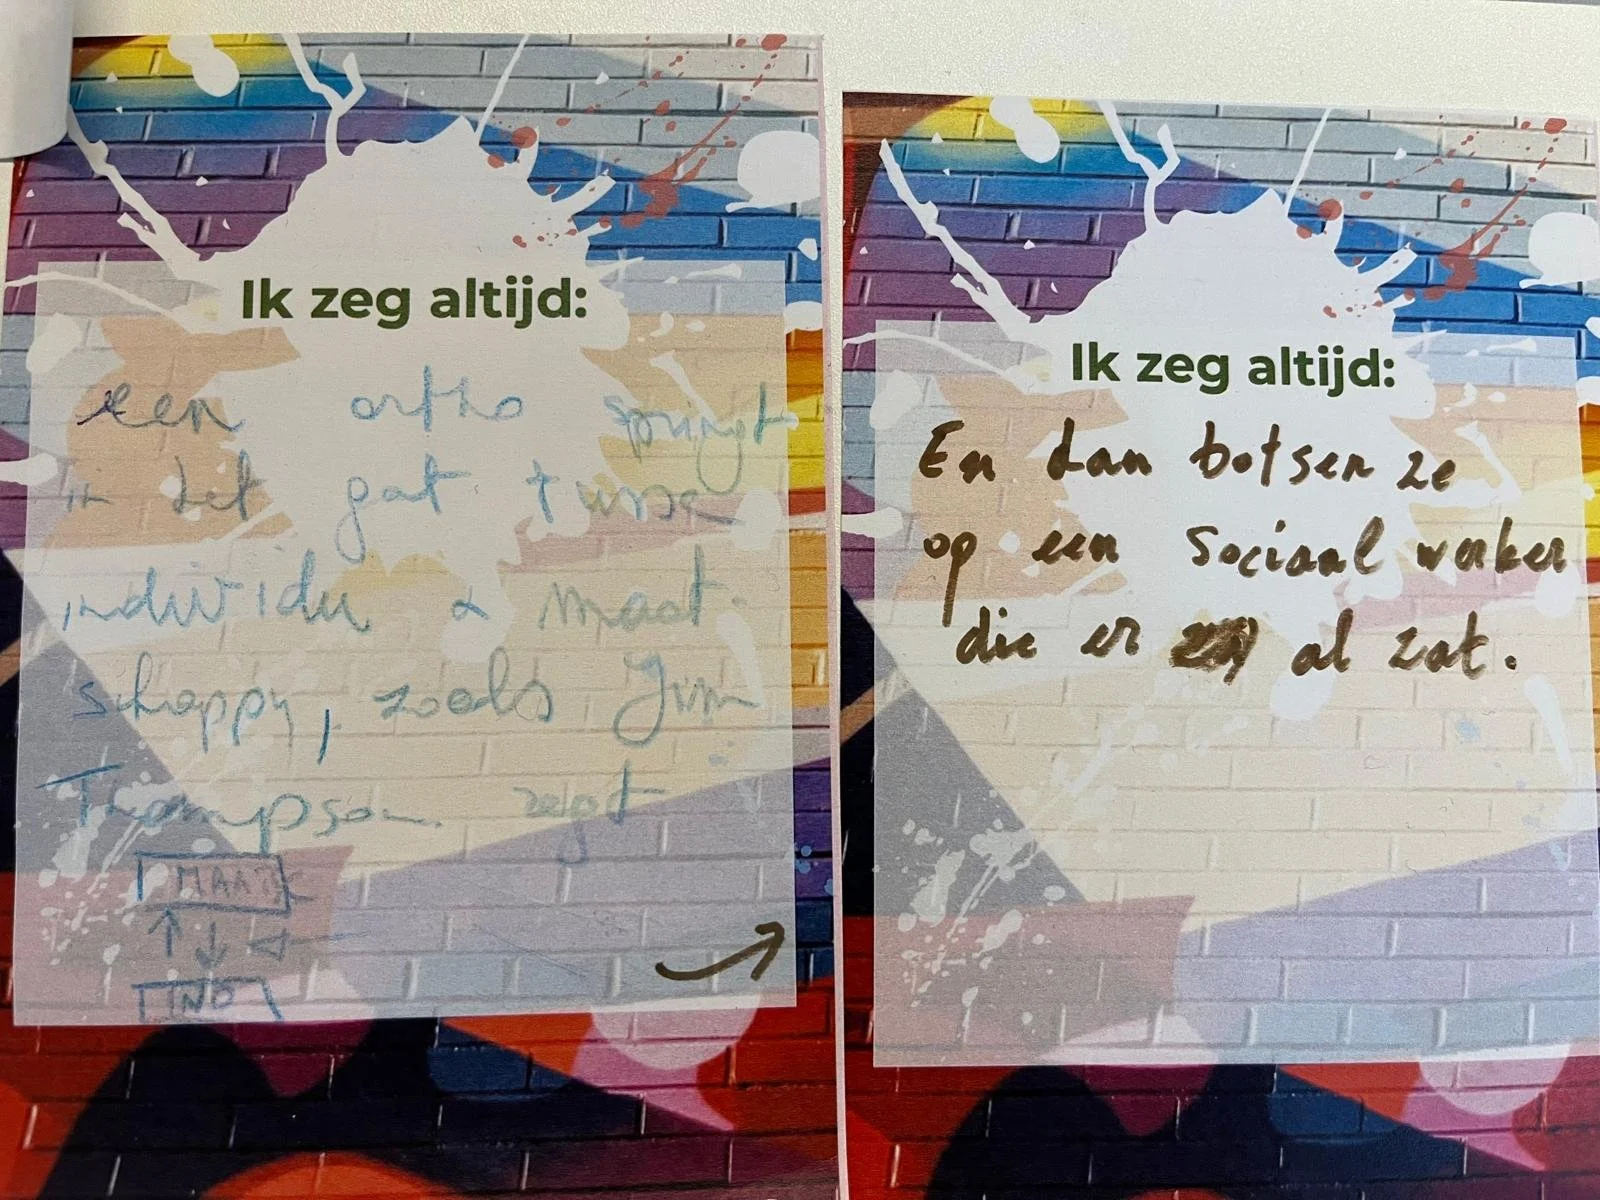 Ik zeg altijd:
een ortho springt
in het gat tussen
individu & maat-
schappy, zoals Jim
Thompson zegt
MAATS
IND
Ik zeg altijd:
En dan botsen ze
op een Sociaal werker
die er al zat.